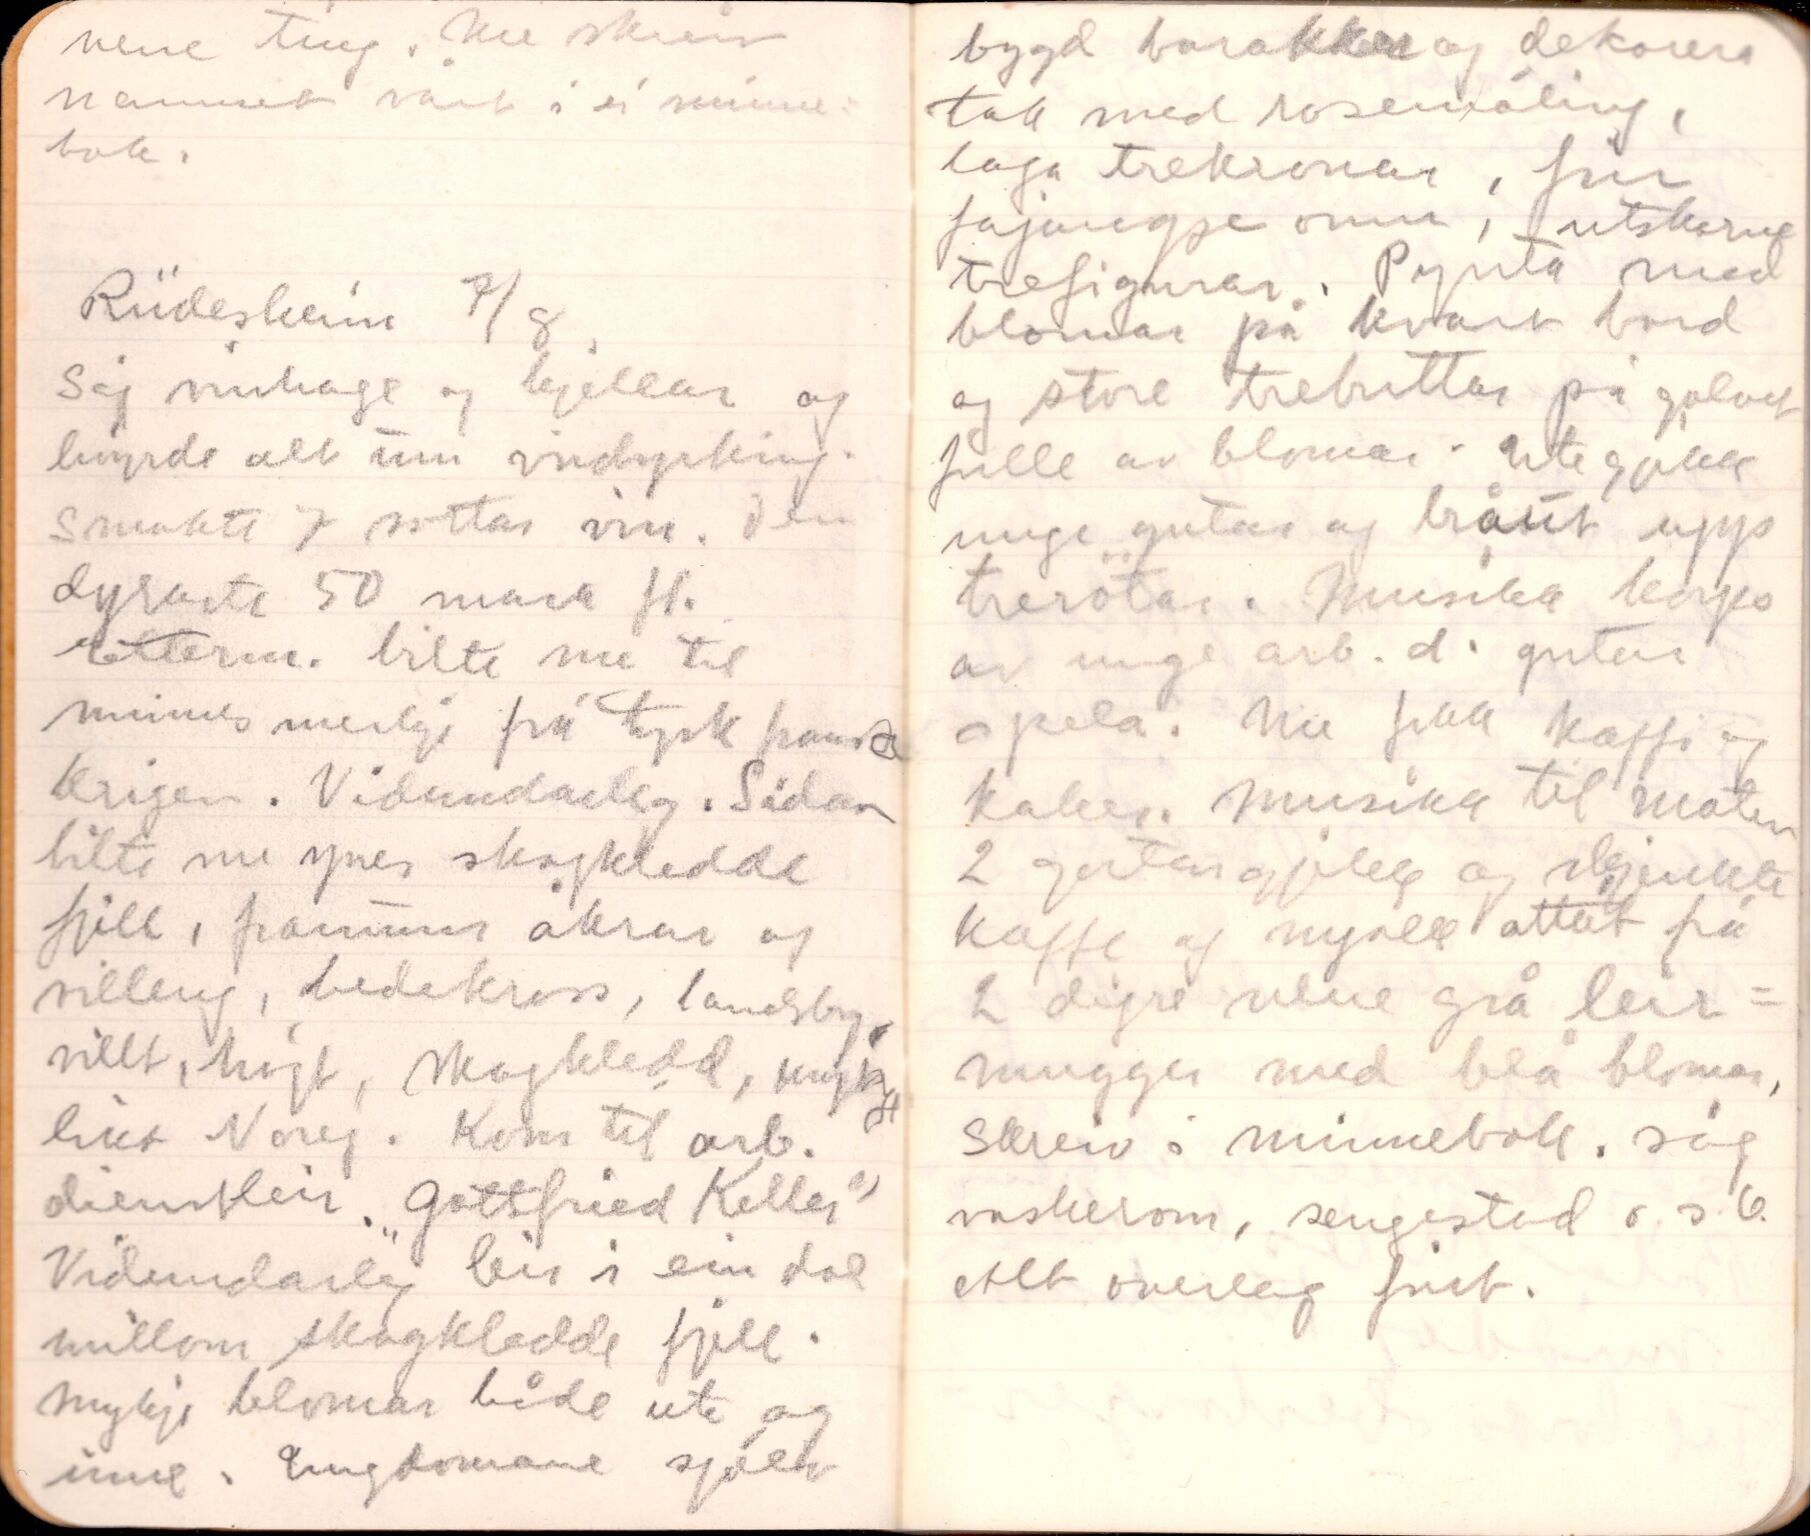 vene ting. Me skreiv
namnet vårt i ei minne=
bok.
Rüdesheim 7/8.
Såg vinhage og kjellar og
høyrde alt um vindyrking.
Smakte 7 sortar vin. Den
dyraste 50 mark fl.
Etterm. bilte me til
minnesmerkje frå tysk franske
krigen. Vidunderleg. Sidan
bilte me yver skogkledde
fjell, framum åkrar og
villeng, bedekross, landsby,
villt, høgt, skogkledd, mykje
likt Noreg. Kom til arb.
dienstleir. „Gottfried Keller"
Vidunderleg leir i ein dal
millom skogkledde fjell.
Mykje blomar både ute og
inne. Ungdomane sjølv
bygd barakker og dekorera
tak med rosemåling,
laga trekronar, fin
fajangse omn, utskorne
trefigurar. Pynta med
blomar på kvart bord
og store trebuttar på golvet
fulle av blomar. Ute gjekk
unge gutar og braut upp
trerøtar. Musikk korps
av unge arb. d. gutar
spela. Me fekk kaffi og
kaker. Musikk til maten
2 gutar gjekk og skjenkte
kaffe og mjølk attåt frå
2 digre vene grå leir=
mugger med blå blomar,
Skreiv i minnebok. såg
vaskerom, sengestad o. s. v.
Alt overlag fint.